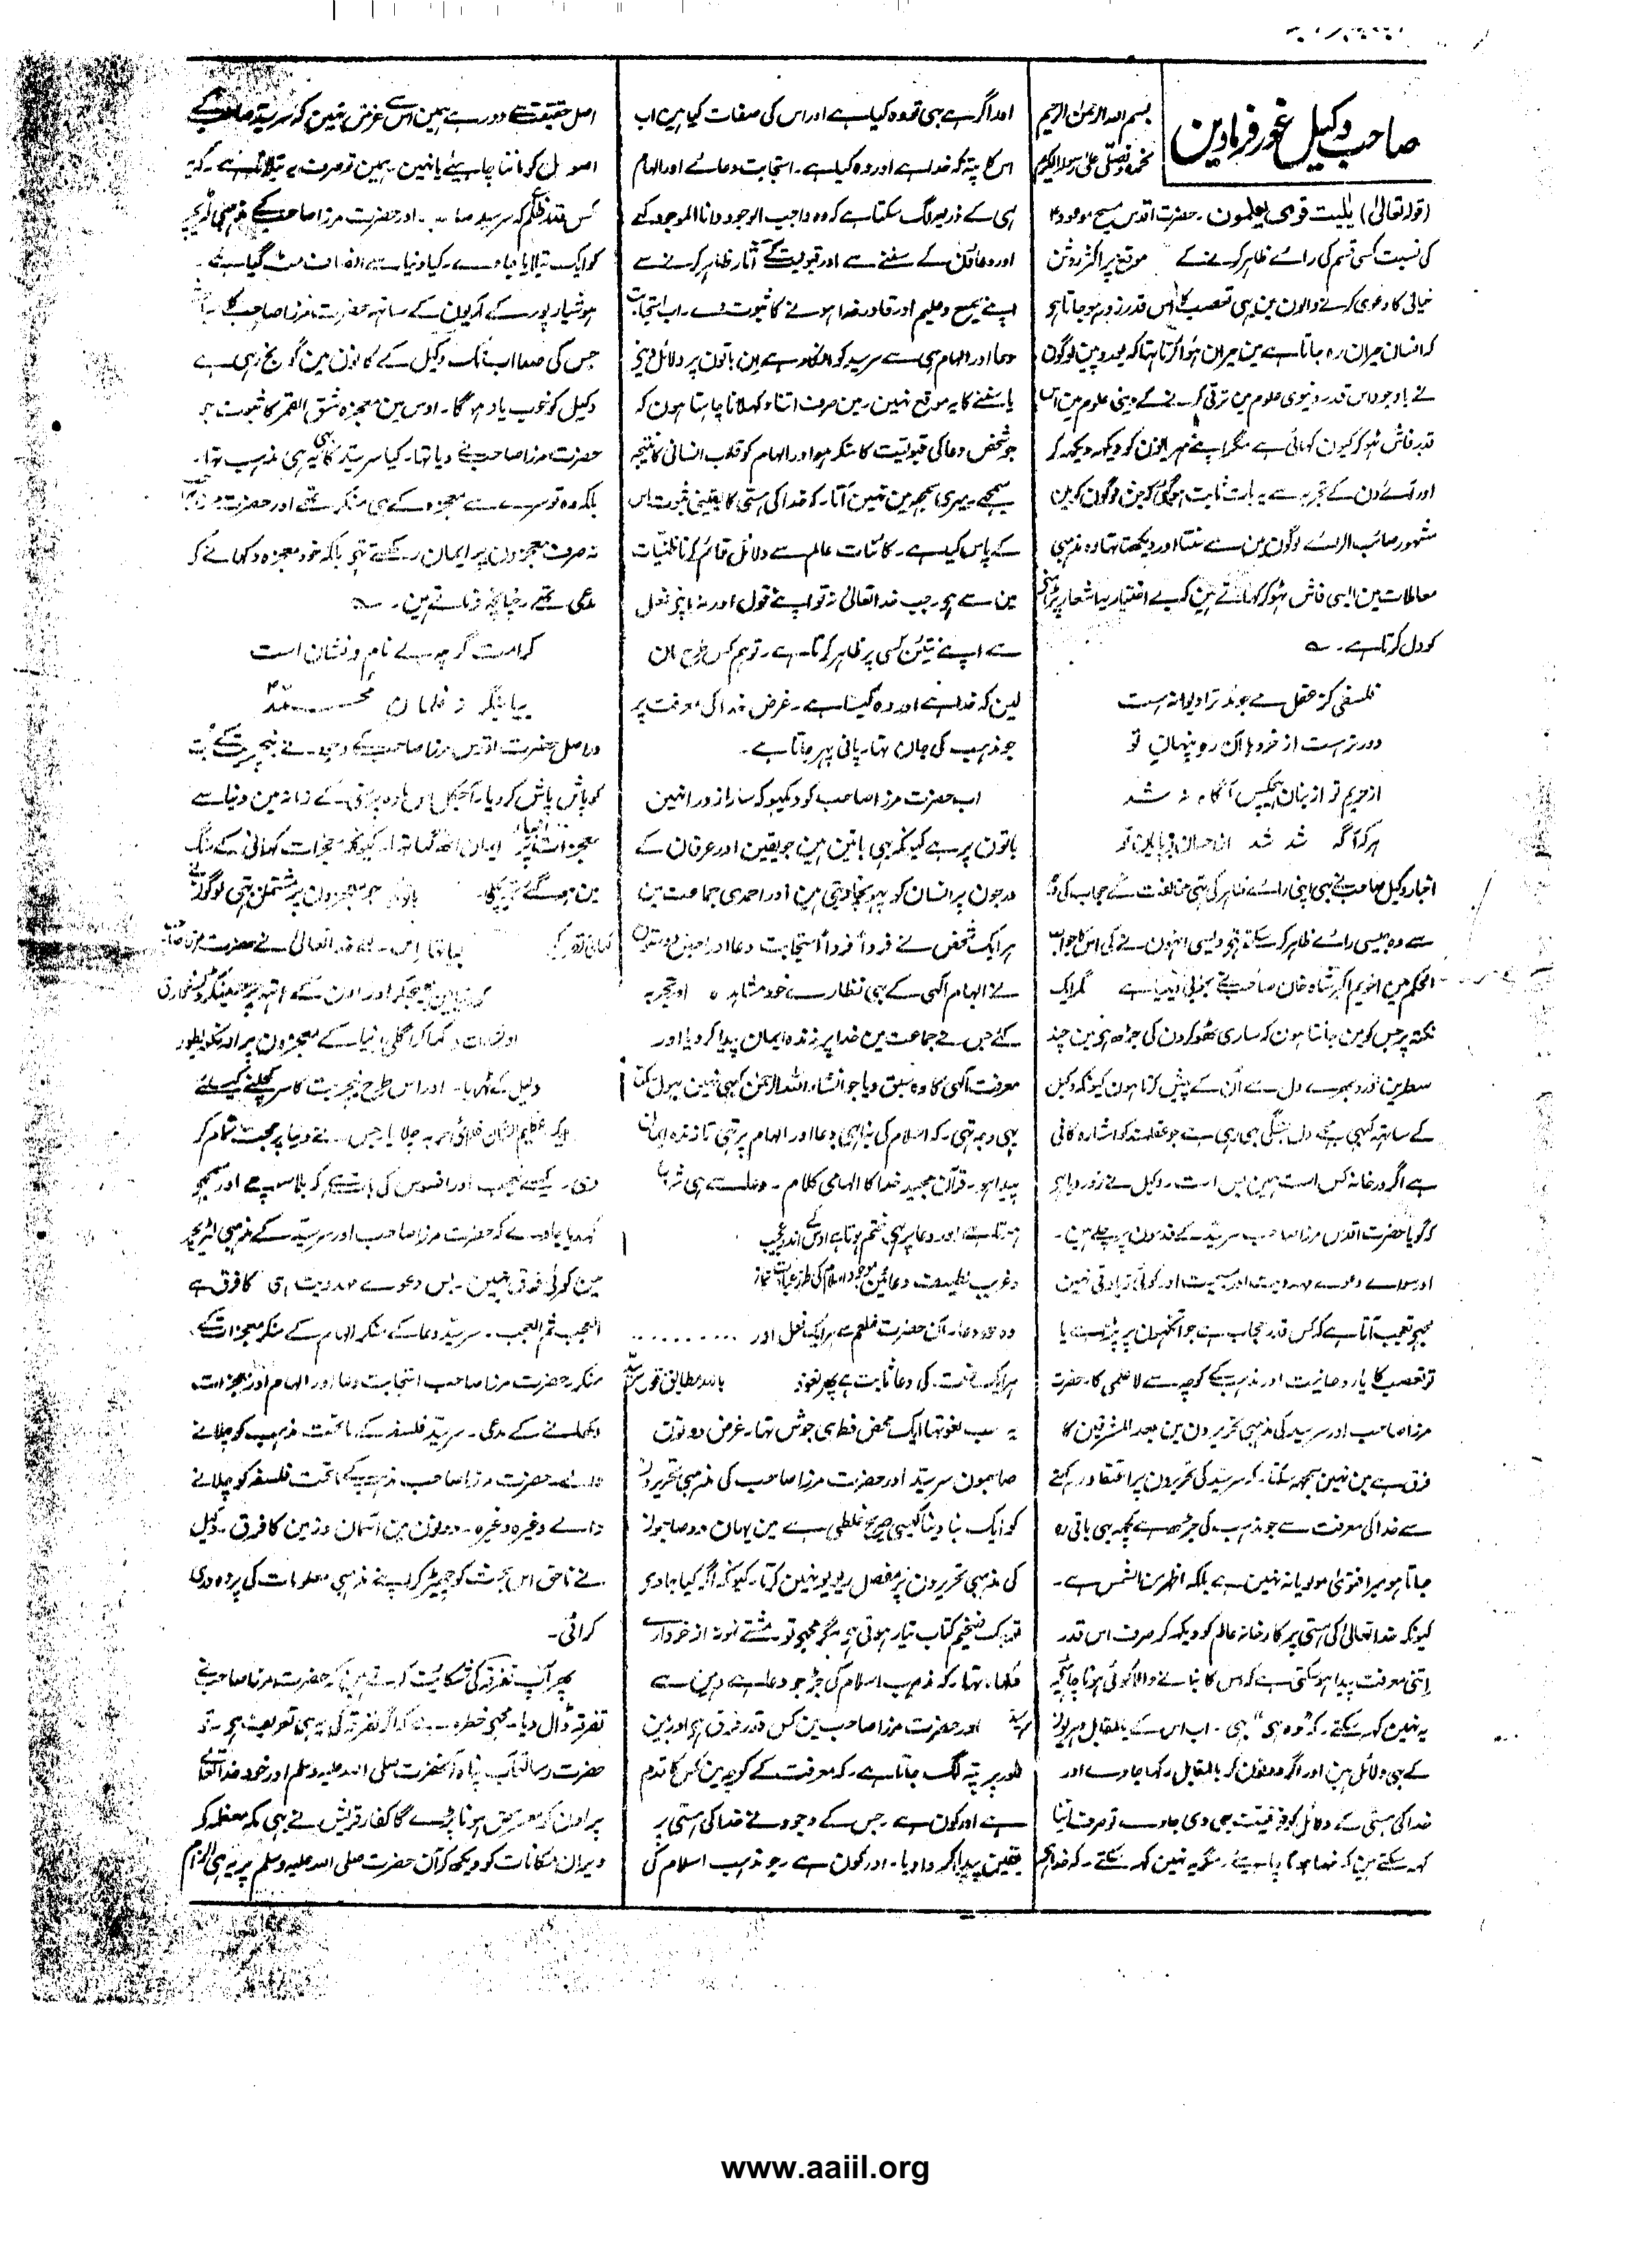 صاحب وکیل غور فرماوین
بسم اللہ الرحمن الرحیم
نحمدہ ونصلی علی رسولہ الکریم
(قولہ تعالیٰ) یٰلیت قومی یعلمون۔ حضرت اقدس مسیح موعودؑ
کی نسبت کسی قسم کی رائے ظاہر کرنے کے موقع پر اکثر روشن
خیالی کا دعوی کرنے والون مین بہی تعصب کا اس قدر زور ہو جاتا ہو
کہ انسان حیران رہ جاتا ہے مین حیران ہوا کرتا تہا کہ یوروپین لوگون
نے باوجود اس قدر دنیوی علوم مین ترقی کرنے کے دینی علوم مین اس
قدر فاش ٹہوکر کیون کہائی ہے مگر اپنے مہربانون کو دیکہہ دیکہہ کر
اور آئے دن کے تجربہ سے یہ بات ثابت ہو گئی کہ جن لوگون کو مین
مشہور صائب الرائے لوگون مین سے سنتا اور دیکہتا تہا وہ مذہبی
معاملات مین ایسی فاش ٹہوکر کہاتے ہین کہ بے اختیار یہ اشعار پڑہنے
کو دل کرتا ہے۔ ؎
فلسفی کز عقل مے جوید ترا دیوانہ است
دورتر ہست از خردہا آن رہ پنہانِ تو
از حریم تو ازینان ہیچکس آگاہ نہ شد
ہر کہ آگہ شد شد از احسان بے پایان تو
اخبار وکیل صاحب نے بہی اپنی رائے ظاہر کی تہی مخالفت کے حجاب کی وجہ
سے وہ جیسی رائے ظاہر کر سکتے تہے ویسی انہون نے کی اس کا جواب
الحکم مین اخویم اکبر شاہ خان صاحب نے بخوبی دیدیا ہے مگر ایک
نکتہ پر جس کو مین جانتا ہون کہ ساری ٹہوکرون کی جڑہ ہو مین چند
سطرین درد بہرے دل سے اُن کے پیش کرتا ہون کیونکہ وکیل
کے ساتہہ کبہی مجہے دل بستگی بہی رہی ہے جو عقلمند کو اشارہ کافی
ہے اگر در خانہ کس است ہمین بس است۔ وکیل نے زور دیا ہو
کہ گویا حضرت اقدس مرزا صاحب سرسید کے قدمون پر چلے ہین۔
اور سوائے دعوے مہدویت اور مسیحیت اور کوئی زیادتی نہین
مجہے تعجب آتا ہے کہ کس قدر حجاب ہے جو آنکہون پر پڑا ہے یا
تو تعصب کا یا روحانیت اور مذہب کے کوچہ سے لاعلمی کا۔ حضرت
مرزا صاحب اور سرسید کی مذہبی تحریرون مین بعد المشرقین کا
فرق ہے مین نہین سمجہہ سکتا۔ کہ سرسید کی تحریرون پر اعتقاد رکہنے
سے خدا کی معرفت سے جو مذہب کی جڑہ ہے کچہہ بہی باقی رہ
جاتا ہو میرا فتویٰ مولویانہ نہین ہے بلکہ اظہر من الشمس ہے۔
کیونکہ خدا تعالیٰ کی ہستی پر کارخانہ عالم کو دیکہہ کر صرف اس قدر
اتنی معرفت پیدا ہو سکتی ہے کہ اس کا بنانے والا کوئی ہونا چاہئیے
یہ نہین کہہ سکتے۔ کہ "وہ ہی" بہی۔ اب اس کے بالمقابل دہریون
کے بہی دلائل ہین اور اگر دونون کو بالمقابل رکہا جاوے اور
خدا کی ہستی کے دلائل کو فوقیت بہی دی جاوے تو صرف اتنا
کہہ سکتے ہین کہ خدا ہونا چاہیئے۔ مگر یہ نہین کہہ سکتے۔ کہ خدا ہے
اور اگر ہے بہی تو وہ کیا ہے اور اس کی صفات کیا ہین اب
اس کا پتہ کہ خدا ہے اور وہ کیا ہے۔ استجابت دعا سے اور الہام
ہی کے ذریعہ لگ سکتا ہے کہ وہ واجب الوجود و انا الموجود کے
اور دعاؤن کے سننے سے اور قبولیت کے آثار ظاہر کرنے سے
اپنے سمیع و علیم اور قادر خدا ہونے کا ثبوت دے۔ اب استجابت
دعا اور الہام ہی سے سرسید کو انکار ہے ان باتون پر دلائل دینے
یا سننے کا یہ موقع نہین۔ مین صرف اتنا دکہلانا چاہتا ہون کہ
جو شخص دعا کی قبولیت کا منکر ہو اور الہام کو قلب انسانی کا نتیجہ
سمجہے۔ میری سمجہہ مین نہین آتا۔ کہ خدا کی ہستی کا یقینی ثبوت اس
کے پاس کیا ہے۔ کائنات عالم سے دلائل قائم کرنا ظنیات
مین سے ہو۔ جب خدا تعالیٰ نہ تو اپنے قول اور نہ اپنے فعل
سے اپنے تیئن کسی پر ظاہر کرتا ہے۔ تو ہم کس طرح مان
لین کہ خدا ہے اور وہ کیسا ہے۔ غرض خدا کی معرفت پر
جو مذہب کی جان تہا۔ پانی پہر جاتا ہے۔
اب حضرت مرزا صاحب کو دیکہو کہ سارا زور انہین
باتون پر ہے کیونکہ یہی باتین ہین جو یقین اور عرفان کے
درجون پر انسان کو پہونچا دیتی ہین اور احمدی جماعت مین
ہر ایک شخص نے فرداً فرداً استجابت دعا اور بعض دوستون
نے الہام الٰہی کے بہی نظارے خود مشاہدہ اور تجربہ
کئے جس نے جماعت مین خدا پر زندہ ایمان پیدا کر دیا اور
معرفت الٰہی کا وہ سبق دیا جو انشاء اللہ الرحمٰن کبہی نہین بہول سکتا
یہی وجہ تہی۔ کہ اسلام کی بنا ہی دعا اور الہام پر تہی تا زندہ ایمان
پیدا ہو۔ قرآن مجید خدا کا الہامی کلام۔ دعا سے ہی شروع
ہوتا ہے اور دعا پر ہی ختم ہوتا ہے اوس کے اندر عجیب
و غریب لطیف دعائین موجود اسلام کی طرز عبادت نماز
وہ خود دعا۔ آن حضرت صلعم سے ہر ایک فعل اور ..........
ہر ایک وقت کی دعا ثابت ہے پہر نعوذ باللہ مطابق قول سرسید
یہ سب لغو تہا ایک محض فطری جوش تہا۔ غرض دونون
صاحبون سرسید اور حضرت مرزا صاحب کی مذہبی تحریرون
کو ایک بنا دینا کیسی صریح غلطی ہے مین یہان ہر دو صاحبون
کی مذہبی تحریرون پر مفصل ریویو نہین کرتا۔ کیونکہ اگر کیا جاوے
تو ایک ضخیم کتاب تیار ہوتی ہے مگر مجہے تو مشتے نمونہ از خروارے
دکہانا تہا۔ کہ مذہب اسلام کی جڑ جو دعا ہے اس مین سے
سرسید اور حضرت مرزا صاحب مین کس قدر فرق ہو اور بین
طور پر پتہ لگ جاتا ہے۔ کہ معرفت کے کوچہ مین کس کا قدم
ہے اور کون ہے۔ جس کے وجود نے خدا کی ہستی پر
یقین پیدا کروا دیا۔ اور کون ہے۔ جو مذہب اسلام کی
اصل حقیقت سے دور ہے ہمین اس سے غرض نہین کہ سرسید صاحب کے
اصول کو ماننا چاہیئے یا نہین۔ ہمین تو صرف یہ بتلانا ہے۔ کہ یہ
کس قدر ظلم کہ سرسید صاحب اور حضرت مرزا صاحب کے مذہبی لٹریچر
کو ایک بتلایا جاوے۔ کیا دنیا سے انصاف مٹ گیا ہے۔
ہوشیارپور کے آریون کے ساتہہ حضرت مرزا صاحب کا مباحثہ
جس کی صدا اب تک وکیل کے کانون مین گونج رہی ہے
وکیل کو خوب یاد ہوگا۔ اوس مین معجزہ شق القمر کا ثبوت جو
حضرت مرزا صاحب نے دیا تہا۔ کیا سرسید کا بہی یہ ہی مذہب تہا۔
بلکہ وہ تو سرے سے معجزہ کے ہی منکر تہے اور حضرت مرزا صاحب
نہ صرف معجزون پر ایمان رکہتے تہے بلکہ خود معجزہ دکہانے کے
مدعی تہے۔ چنانچہ فرماتے ہین۔ ؎
کرامت گرچہ بے نام و نشان است
بیا بنگر ز غلمان محمدؐ
دراصل حضرت اقدس مرزا صاحب کے وجود نے نیچریت کے بت
کو پاش پاش کر دیا۔ آجکل اس مادہ پرستی کے زمانہ مین دنیا سے
معجزات انبیاء پر ایمان اٹہہ گیا تہا۔ کیونکہ معجزات کہانی کے رنگ
مین ہو گئے
خدا تعالیٰ نے حضرت مرزا صاحب
کو دنیا مین بہیجکر اور اون کے ہاتہہ پر سینکڑون خارق
او نشانات دکہا کر اگلی دنیا کے معجزون پر اونکو بطور
دلیل کے ٹہہرایا۔ اور اس طرح نیچریت کا سر کچلنے کیلئے
ایک عظیم الشان جس نے دنیا پر حجت تمام کر
دی۔ کیسے تعجب اور افسوس کی بات ہے کہ بلا سوچے اور سمجہے
کہہ دیا جاوے کہ حضرت مرزا صاحب اور سرسید کے مذہبی لٹریچر
مین کوئی فرق نہین۔ بس دعوے مہدویت ہی کا فرق ہے
العجب ثم العجب۔ سرسید دعا کے منکر الہام کے منکر معجزات کے
منکر۔ حضرت مرزا صاحب استجابت دعا اور الہام اور معجزات
دکہلانے کے مدعی۔ سرسید فلسفہ کے ماتحت مذہب کو چلانے
والے۔ حضرت مرزا صاحب مذہب کے ماتحت فلسفہ کو چلانے
والے وغیرہ وغیرہ۔ دونون مین آسمان و زمین کا فرق۔ وکیل
نے ناحق اس بحث کو چہیڑ کر اپنے مذہبی معلومات کی پردہ دری
کرائی۔
پہر آپ تفرقہ کی شکائیت کرتے ہین کہ حضرت مرزا صاحب نے
تفرقہ ڈال دیا۔ مجہے خطرہ ہے کہ اگر تفرقہ کی یہ ہی تعریف ہو۔ تو
حضرت رسالتمآب پناہ آنحضرت صلی اللہ علیہ وسلم اور خود خدا تعالےٰ
پر اون کو معترض ہونا پڑے گا کفار قریش نے بہی مکہ معظمہ کے
ویران مکانات کو دیکہہ کر آن حضرت صلی اللہ علیہ وسلم پر یہ ہی الزام
www.aaiil.org